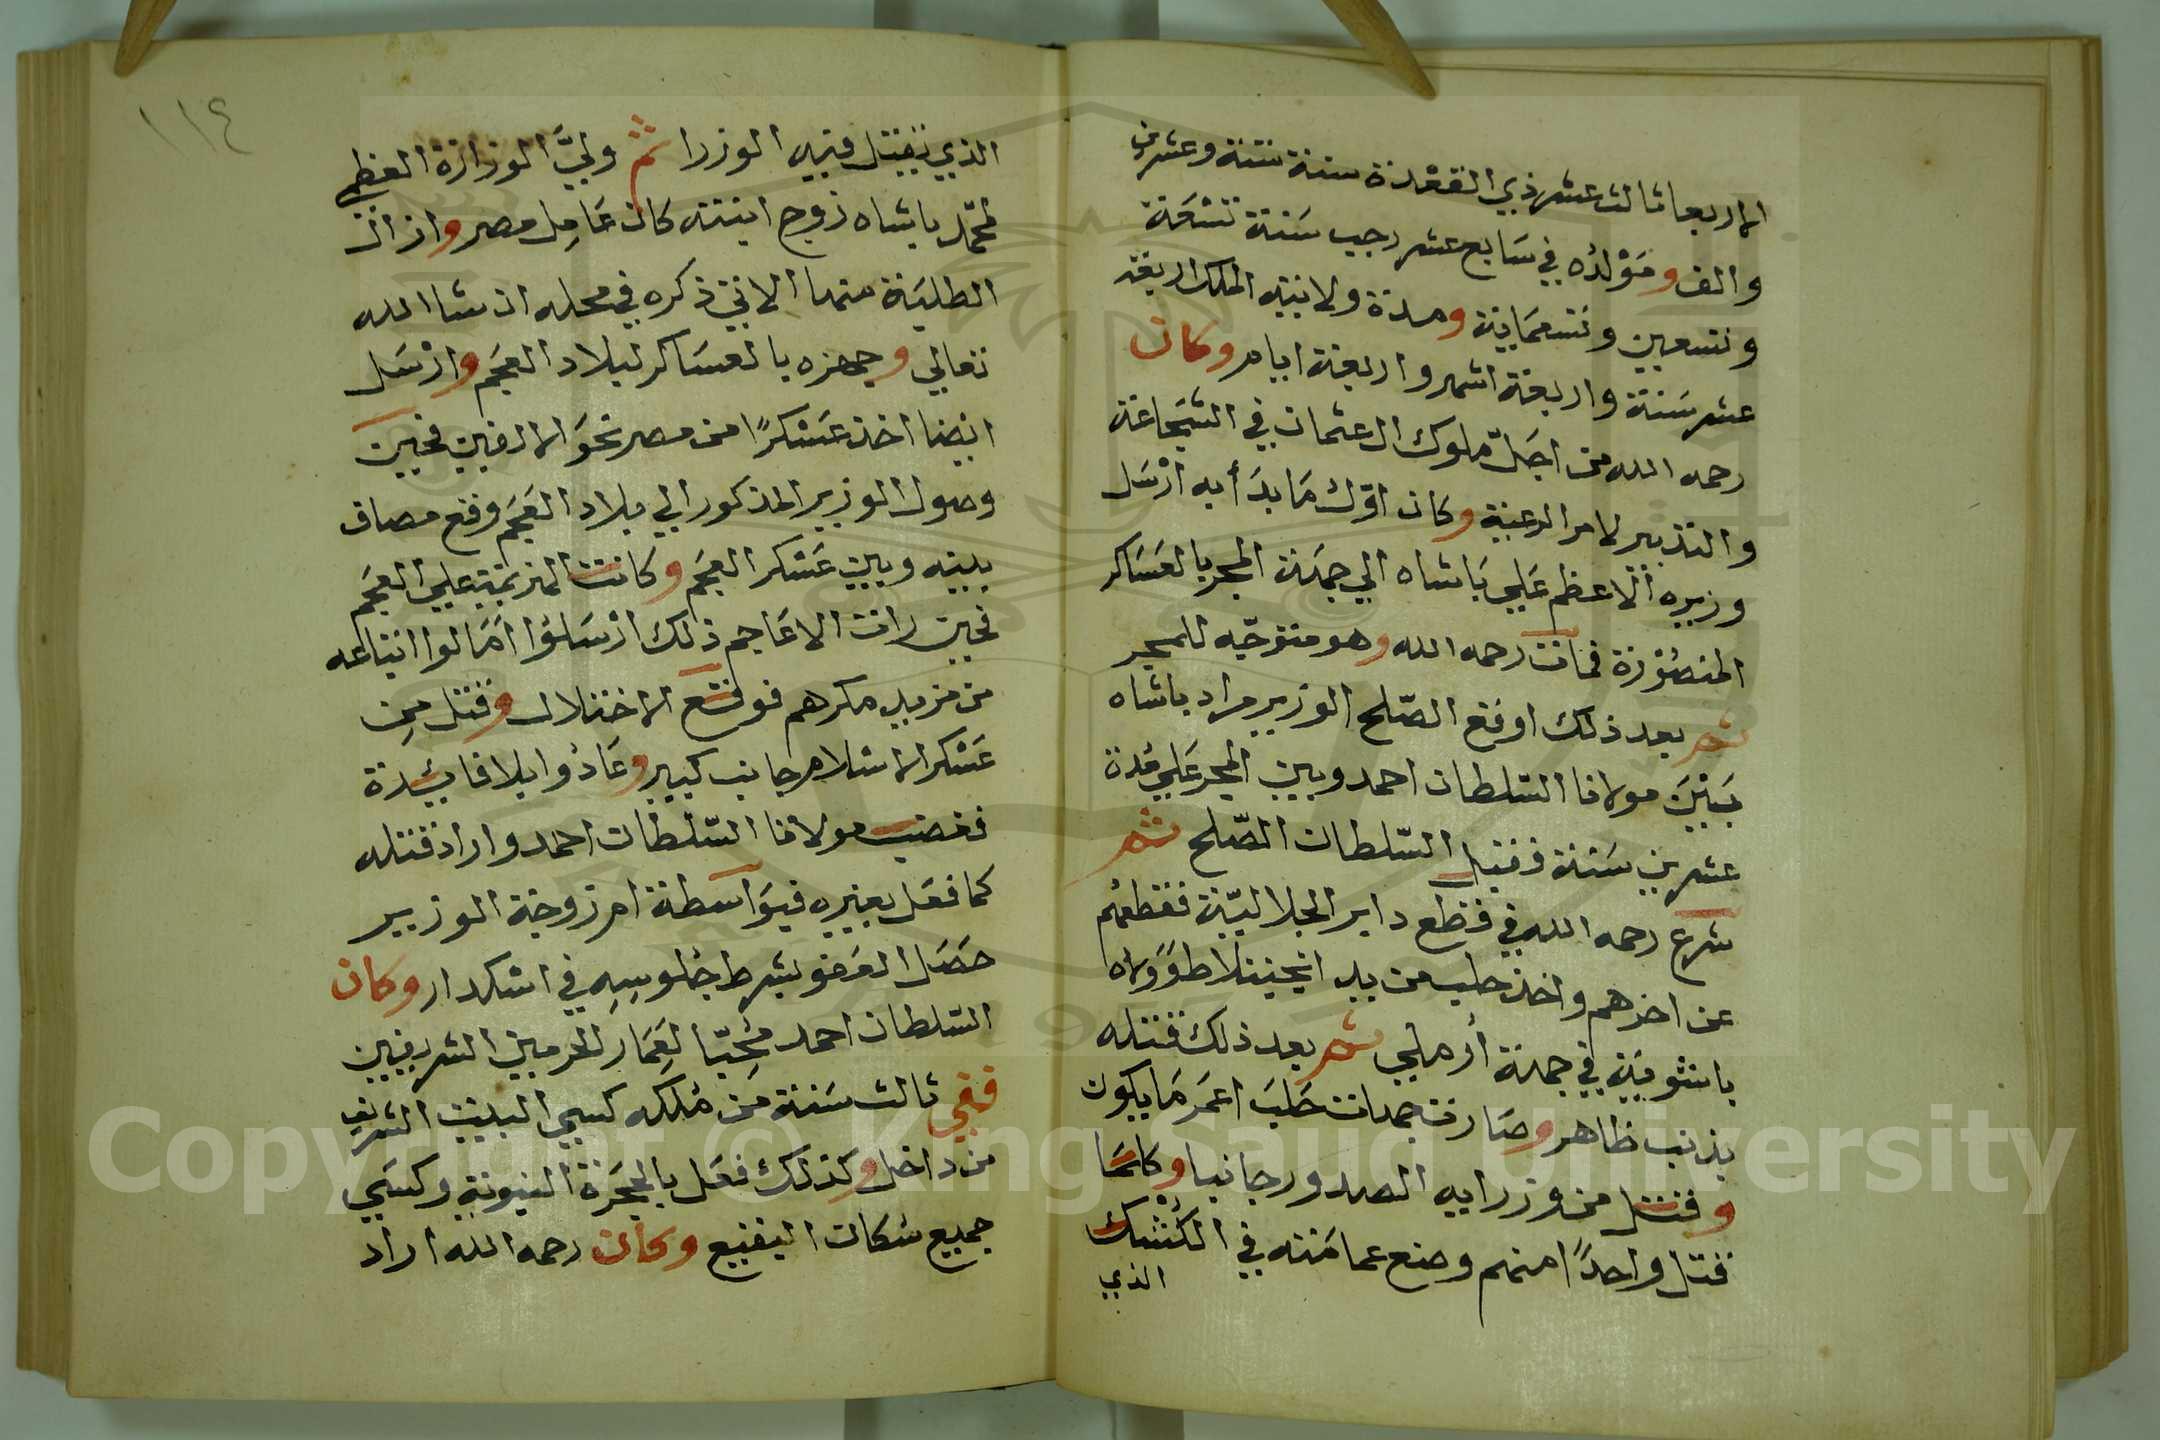 الاربعا ثالث عشر ذي القعدة سنة ستة وعشرين
والف ومَوْلدُه في سَابع عشر رجب سَنة تسْعَة
وتسعين وتسعمَاية ومدة ولايته الملك اربعة
عشر سَنة واربعة اشهر واربعة ايام وكان
رحمه الله من اجَلّ ملوك ال عثمان في الشجَاعة
والتدبير لامر الرعية وكان اوّل مَا بدَأ به ارْسَل
وزيره الاعظم عَلي بَاشاه الي جهَة المجر بالعَسَاكر
المنصُوْرة فمات رحمه الله وهو متوجّه للمجر
ثم بعد ذلك اوقع الصّلح الوزير مراد باشاه
بَيْنَ مولانا السّلطان احمد وبين المجر عَلي مُدة
عشرين سَنة فقبل السّلطان الصّلح ثم
شرع رحمه الله في قطع دابر الجلاليّة فقطعهُم
عن اخرهم واخذ حلب من يد وولاه
باشوية في جهة ثم بعد ذلك قتله
بذنب ظاهر وصَارت جهات حَلبَ اعمَر مَا يكون
وقتل من وزرايه الصدور جانبا وكلمَا
قتل واحدًا منهم وضع عمامَته في الكُشْك
الذي
١١٤
الذي يقتل فيه الوزرا ثم وليَّ الوزارة العظمي
محمّد باشاه زوج ابنته كان عَامِل مصر وازال
الطلبَة منها الاتي ذكره في محله ان شا الله
تعالي وجهزه بالعسَاكر لبلاد العجَم وارْسَل
ايضا اخذ عَسْكرًا من مصر نحوَ الالفين فحين
وصول الوزير المذكور الي بلاد العَجَم وقع مصاف
بينه وبين عَسْكر العجَم وكانت الهزيمة علي العجَم
فحين رات الاعَاجم ذلك ارْسَلوُا امَالوا اتباعه
من مزيد مكرهم فوقع الاختلال وقتل مِن
عَسْكر الاسْلام جانب كبير وعَادُوا بلا فايدة
فغضب مولانا السّلطان احمد واراد قتله
كما فعَل بغيره فبوَاسطة ام زوجة الوزير
حَصَل العَفو بشرط جُلوسِهِ في اسْكدار وكان
السّلطان احمد مُحِبّا لعِمَار الحرمين الشريفين
ففي ثالث سَنة من مُلكه كسي البيت الشريف
من داخل وكذلك فعَل بالحجَرة النبوية وكسَي
جميع سُكان البقيع وكان رحمه الله اراد
Copyright © King Saud University